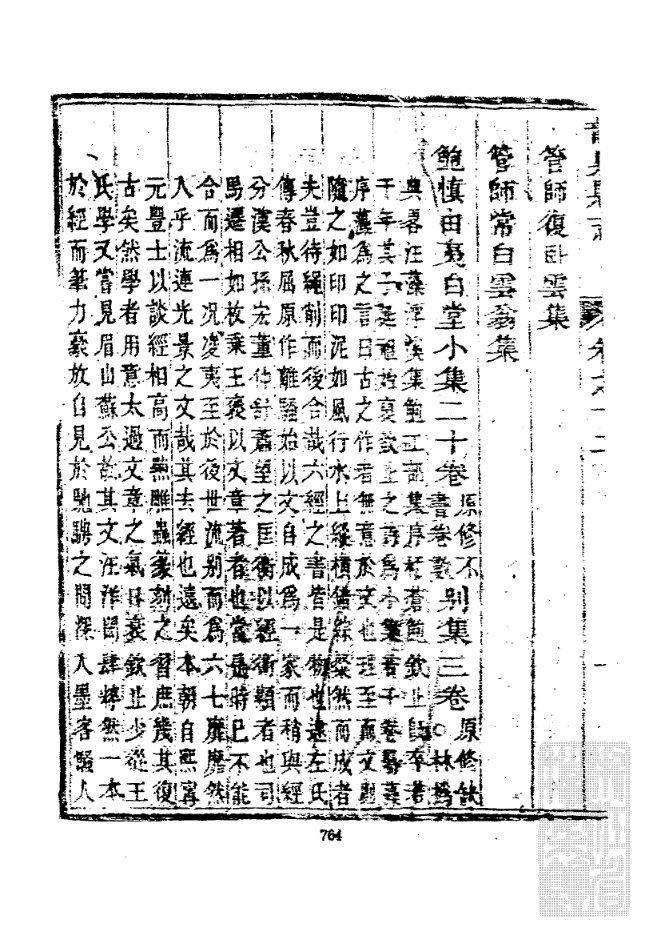 管師復臥雲集
管師常白雲翁集
鮑慎由夷白堂小集二十卷 原修不書卷數 別集三卷 原修缺○林
汪藻浮溪集鮑集序括蒼鮑欽止既卒
十年其子延祖為小集若干卷
序藻為之言曰古之作者無意於文也理至而文
隨之如印印泥如風行水上縱橫錯綜燦然而成者
夫豈待繩削而後合哉六經之書皆是物也逮左氏
傳春秋屈原作離騷始以文自成為一家而稍與經
分漢公孫宏董仲舒蕭望之匡衡以經術顯者也司
馬遷相如枚乘王褒以文章著者也當是時已不能
合而為一況凌夷至於後世流別而為六七靡靡然
入乎流連光景之文哉其去經也遠矣本朝自熙寧
元豐士以談經相高而黜雕蟲篆刻之習庶幾其復
古矣然學者用意太過文章之氣日衰欽止少從王
氏學又嘗見眉山蘇公故其文汪洋閎肆粹然一本
於經而筆力豪放自見於馳騁之間深入墨客騷人
764